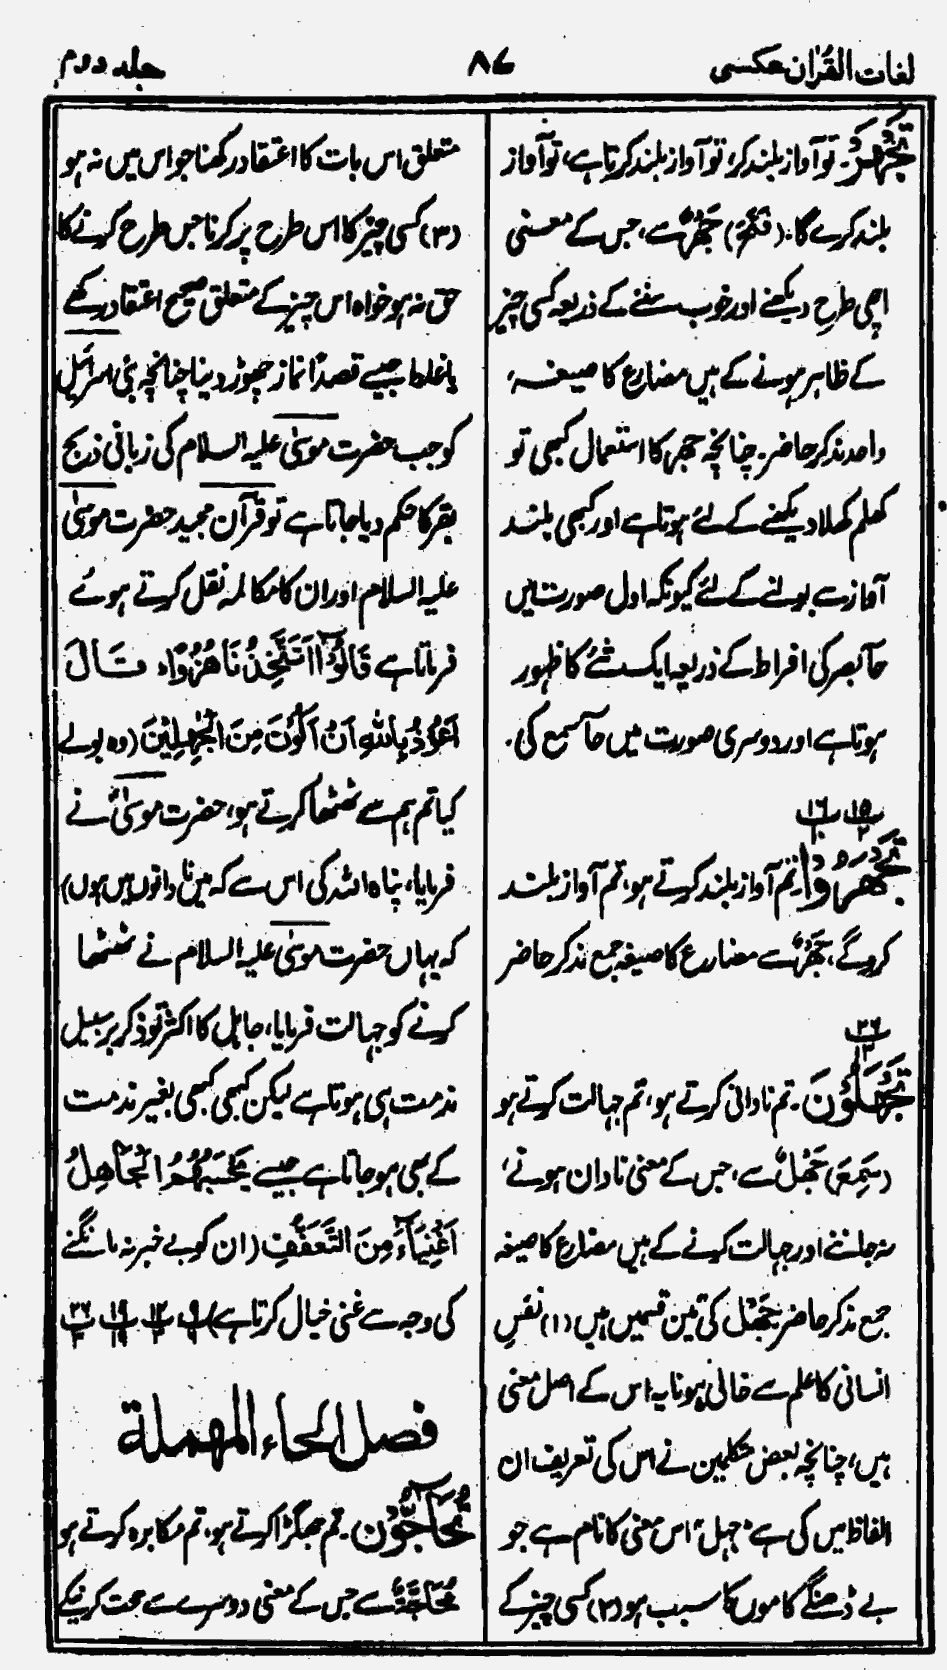 لغات القرآن عکسی
۸۷
جلد دوم
تَجْهَرْ۔ تو آواز بلند کر، تو آواز بلند کرتا ہے، تو آواز
بلند کرے گا۔ (فَتَحَ) جَهْرٌ سے، جس کے معنی
اچھی طرح دیکھنے اور خوب سننے کے ذریعہ کسی چیز
کے ظاہر ہونے کے ہیں مضارع کا صیغہ،
واحد مذکر حاضر۔ چنانچہ جہر کا استعمال کبھی تو
کھلم کھلا دیکھنے کے لئے ہوتا ہے اور کبھی بلند
آواز سے بولنے کے لئے کیونکہ اول صورت میں
حاسّہ بصر کی افراط کے ذریعہ ایک شئے کا ظہور
ہوتا ہے اور دوسری صورت میں حاسّہ سمع کی۔
پ۱۵ پ۱۶
تَجْهَرُوا۔ تم آواز بلند کرتے ہو، تم آواز بلند
کرو گے، جَهْرٌ سے مضارع کا صیغہ جمع مذکر حاضر
پ۲۶
تَجْهَلُوْنَ۔ تم نادانی کرتے ہو، تم جہالت کرتے ہو
(سَمِعَ) جَهْلٌ سے، جس کے معنی نادان ہونے،
نہ جاننے اور جہالت کرنے کے ہیں مضارع کا صیغہ
جمع مذکر حاضر جَهْل کی تین قسمیں ہیں (۱) نفسِ
انسانی کا علم سے خالی ہونا یہ اس کے اصل معنی
ہیں، چنانچہ بعض متکلمین نے اس کی تعریف ان
الفاظ میں کی ہے "جہل" اس معنی کا نام ہے جو
بے ڈھنگے کاموں کا سبب ہو (۲) کسی چیز کے
متعلق اس بات کا اعتقاد رکھنا جو اس میں نہ ہو
(۳) کسی چیز کا اس طرح پر کرنا جس طرح کرنے کا
حق نہ ہو خواہ اس چیز کے متعلق صحیح اعتقاد رکھے
یا غلط جیسے قصداً نماز چھوڑ دینا چنانچہ بنی اسرائیل
کو جب حضرت موسیٰ علیہ السلام کی زبانی ذبح
بقر کا حکم دیا جاتا ہے تو قرآن مجید حضرت موسیٰ
علیہ السلام اور ان کا مکالمہ نقل کرتے ہوئے
فرماتا ہے قَالُوْٓا اَتَتَّخِذُنَا هُزُوًا، قَالَ
اَعُوْذُ بِاللّٰهِ اَنْ اَكُوْنَ مِنَ الْجٰهِلِيْنَ (وہ بولے
کیا تم ہم سے ٹھٹھا کرتے ہو، حضرت موسیٰ نے
فرمایا، پناہ اللہ کی اس سے کہ میں نادانوں میں ہوں)
کہ یہاں حضرت موسیٰ علیہ السلام نے ٹھٹھا
کرنے کو جہالت فرمایا، جاہل کا اکثر تو ذکر بر سبیل
مذمت ہی ہوتا ہے لیکن کبھی کبھی بغیر مذمت
کے بھی ہو جاتا ہے جیسے يَحْسَبُهُمُ الْجَاهِلُ
اَغْنِيَآءَ مِنَ التَّعَفُّفِ (ان کو بے خبر نہ مانگنے
کی وجہ سے غنی خیال کرتا ہے) پ۹ پ۱۲ پ۱۹ پ۲۶
فصل الحاء المهملة
تُحَآجُّوْنَ۔ تم جھگڑا کرتے ہو، تم مکابرہ کرتے ہو
مُحَاجَّةٌ سے جس کے معنی دوسرے سے حجت کرنیکے